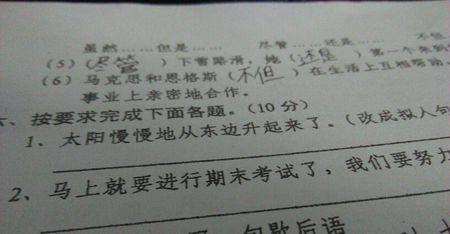 虽然……但是…… 尽管……还是…… 不但
(5)(尽管)下雪路滑，她(还是)第一个来到
(6)马克思和恩格斯(不但)在生活上互相帮助，
事业上亲密地合作。
、按要求完成下面各题。(10分)
1、太阳慢慢地从东边升起来了。(改成拟人句
2、马上就要进行期末考试了，我们要努力
句歇后语